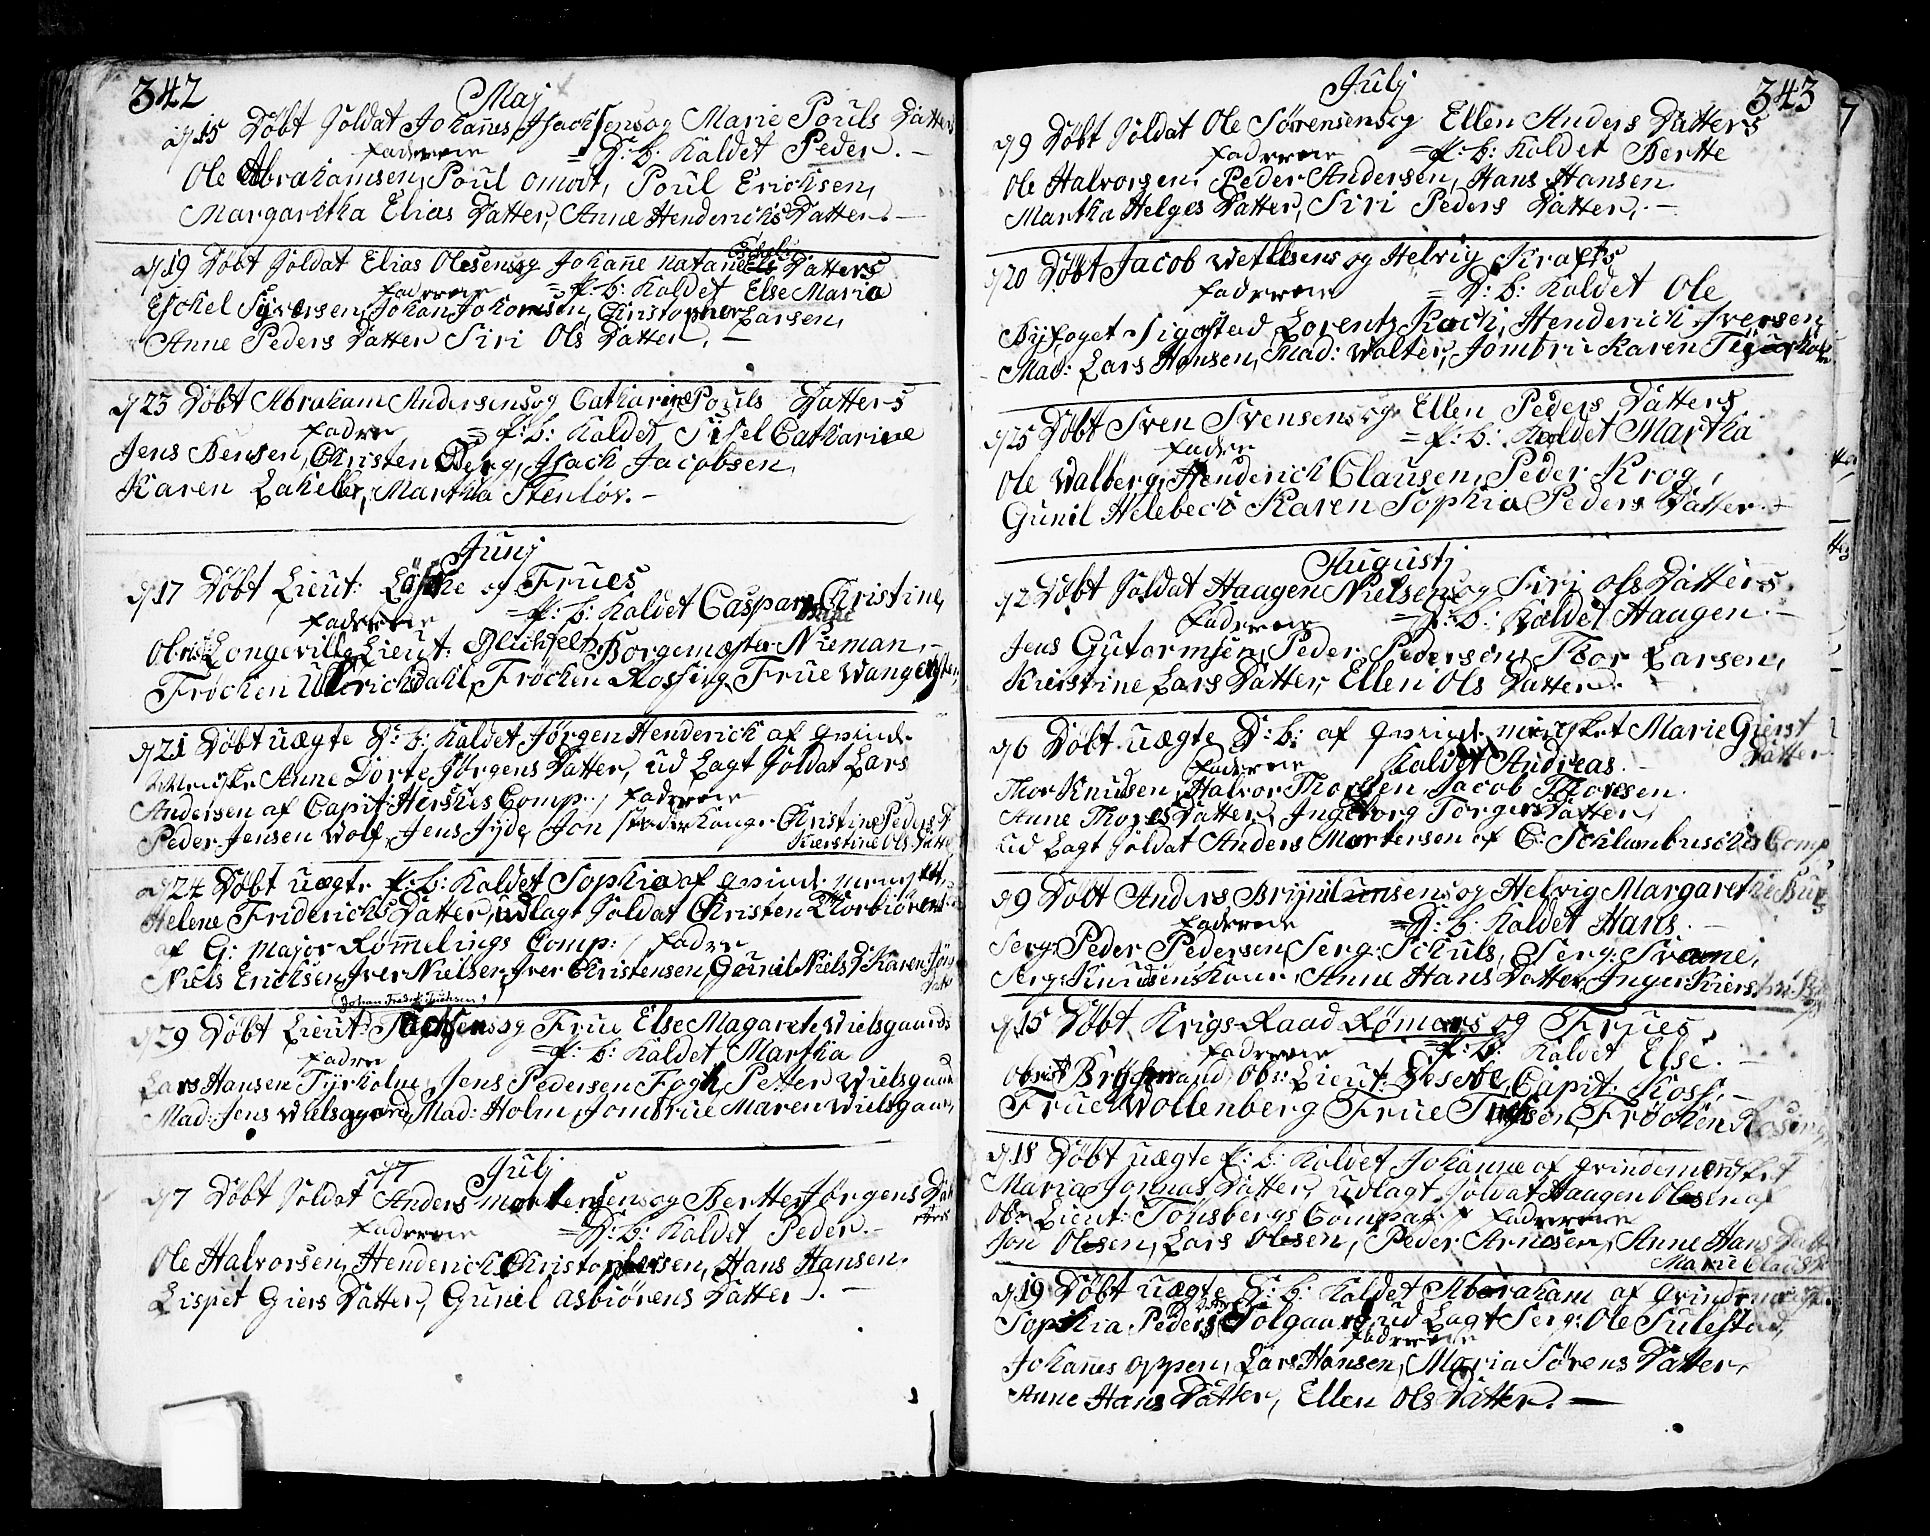 342
Maj
d 15 Döbt Soldat Johannes Jsachsens og Marie Pouls Datters
faderne = D: b: Kaldet Peder. —
Ole Abrahamsen, Poul Omodt, Poul Erichsen,
Margaretha Elias Datter, Anne Henderichs Datter. —
d 19 Döbt Soldat Elias Olesens og Johanne Natanels Datters
faderne = P: b: Kaldet Else Maria
Eschel Syversen, Johan Johansen, Christopher Larsen,
Anne Peders Datter Siri Ols Datter. —
d 23 Döbt Abraham Andersens og Catharine Pouls Datters
fadre = P: b: Kaldet Sisel Catharine
Jens Bensen, Christen Berg, Jsach Jacobsen,
Karen Lakeler, Martha Stenlöv. —
Junj
d 17 Döbt Lieut: og Frues
faderne = P: b: Kaldet Caspara Christine,
Longeville, Lieut: Borgemester Nieman, —
Fröchen Ulrichdahl, Fröchen Rossing, Frue Wangensten,
d 21 Döbt uægte D: b: Kaldet Jörgen Henderich af qvinde
Meniske Anne Dorte Jörgens Datter, ud Lagt Soldat Lars
Andersen af Capit: Herskes Comp: / faderne
Peder Jensen Wolf, Jens Jyde, Jon Christine Peders D
Kierstine Ols Datter
d 24 Döbt uægte P: b: Kaldet Sophia af qvinde mensket
Helene Friderichs Datter, udlagt Soldat Christen Thorbiörens
af G: Major Römmelings Comp: / fadre
Niels Erichsen, Jver Nielsen, Jver Christensen, Gunil Niels D Karen Jöns
Datt
Johan Fredrik Tuchsen
d 29 Döbt Lieut: Tuchsens og Frue Else Magarete Wielsgaards
fadre = P: b: Kaldet Martha
Lars Hansen Tyrholm, Jens Pedersen Fogh, Petter Wielsgaard
Mad: Jens Wielsgaard, Mad: Holm, Jomfrue Maren Wielsgaar,
Julj
d 7 Döbt Soldat Anders Mortensens og Berthe Jörgens Dat
ters
faderne = D: b: Kaldet Peder. —
Ole Halvorsen, Henderich Christophersen, Hans Hansen.
Lispet Giers Datter, Gunil Asbiörens Datter. —
Julj
343
d 9 Döbt Soldat Ole Sörensens og Ellen Anders Datters
faderne = P: b: Kaldet Berthe
Ole Halvorsen, Peder Andersen, Hans Hansen
Martha Helges Datter, Siri Peders Datter. —
d 20 Döbt Jacob Wetlesens og Helvig Krafts
faderne = D: b: Kaldet Ole
Byfoget Sigostad Lorentz Koch, Henderich Jversen
Mad: Lars Hansen, Mad: Walter, Jomfru Karen
d 25 Döbt Sven Svensens og Ellen Peders Datters
fadre = P: b: Kaldet Martha
Ole Walberg, Henderich Clausen, Peder Krog,
Gunil Helebech Karen Sophia Peders Datter. —
Augustj
d 2 Döbt Soldat Haagen Nielsens og Siri Ols Datters
faderne = D: b: Kaldet Haagen. —
Jens Gutormsen, Peder Pedersen, Thor Larsen,
Kierstine Lars Datter, Ellen Ols Datter.
d 6 Döbt uægte D: b: af qvinde mensket Marie Gierst
Datter
faderne Kaldet Andreas. —
Thor Knudsen, Halvor Thorsen Jacob Thorsen.
Anne Thores Datter, Ingeborg Torgers Datter,
ud Lagt Soldat Anders Mortensen af C: Schlambuschis Comp,
d 9 Döbt Anders Brynildsens og Helvig Margarethe Burs
faderne = D: b: Kaldet Hans. —
Serg: Peder Pedersen, Serg: Schuls, Serg: Svane,
Serg: Knudsens Kone, Anne Hans Datter, Inger Kierstine
d 15 Döbt Krigs Raad Römers og Frues
faderne = P: b: Kaldet Else. —
Oberst Brüchmand, Ob: Lieut: Capit: Koss, —
Frue Wollenberg Frue Tuchsen, Fröchen Rosing
d 18 Döbt uægte P: b: Kaldet Johanne af qvindemensket
Maria Jonnas Datter, udlagt Soldat Haagen Olesen af
Ob: Lieut: Tönsbergs Compag: / faderne
Jon Olesen, Lars Olesen, Peder Arnesen, Anne Hans Datt
Marie Claus
d 19 Döbt uægte D: b: Kaldet Abraham af qvindemensket
Sophia Peders Datter Solgaard, ud Lagt Serg: Ole Sulestad,
faderne
Johannes Oppen, Lars Hansen, Maria Sörens Datter,
Anne Hans Datter, Ellen Ols Datter. —